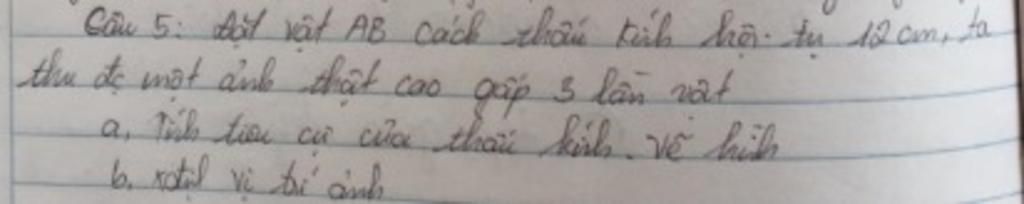 Câu 5: đặt vật AB cách thấu kính hội tụ 12 cm, ta
thu đc một ảnh thật cao gấp 3 lần vật
a, Tính tiêu cự của thấu kính. vẽ hình
b, xđ vị trí ảnh